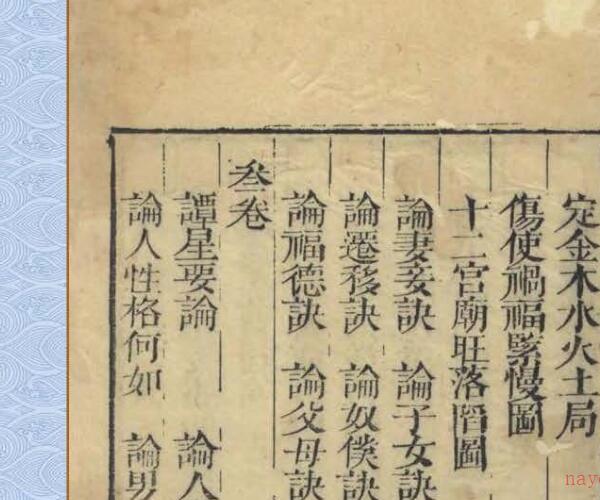 定金木水火土局
傷使禍福緊慢圖
十二宮廟旺落陷圖
論妻妾訣 論子女訣
論遷移訣 論奴僕訣
論福德訣 論父母訣
叁卷
譚星要論 論人
論人性格何如 論男